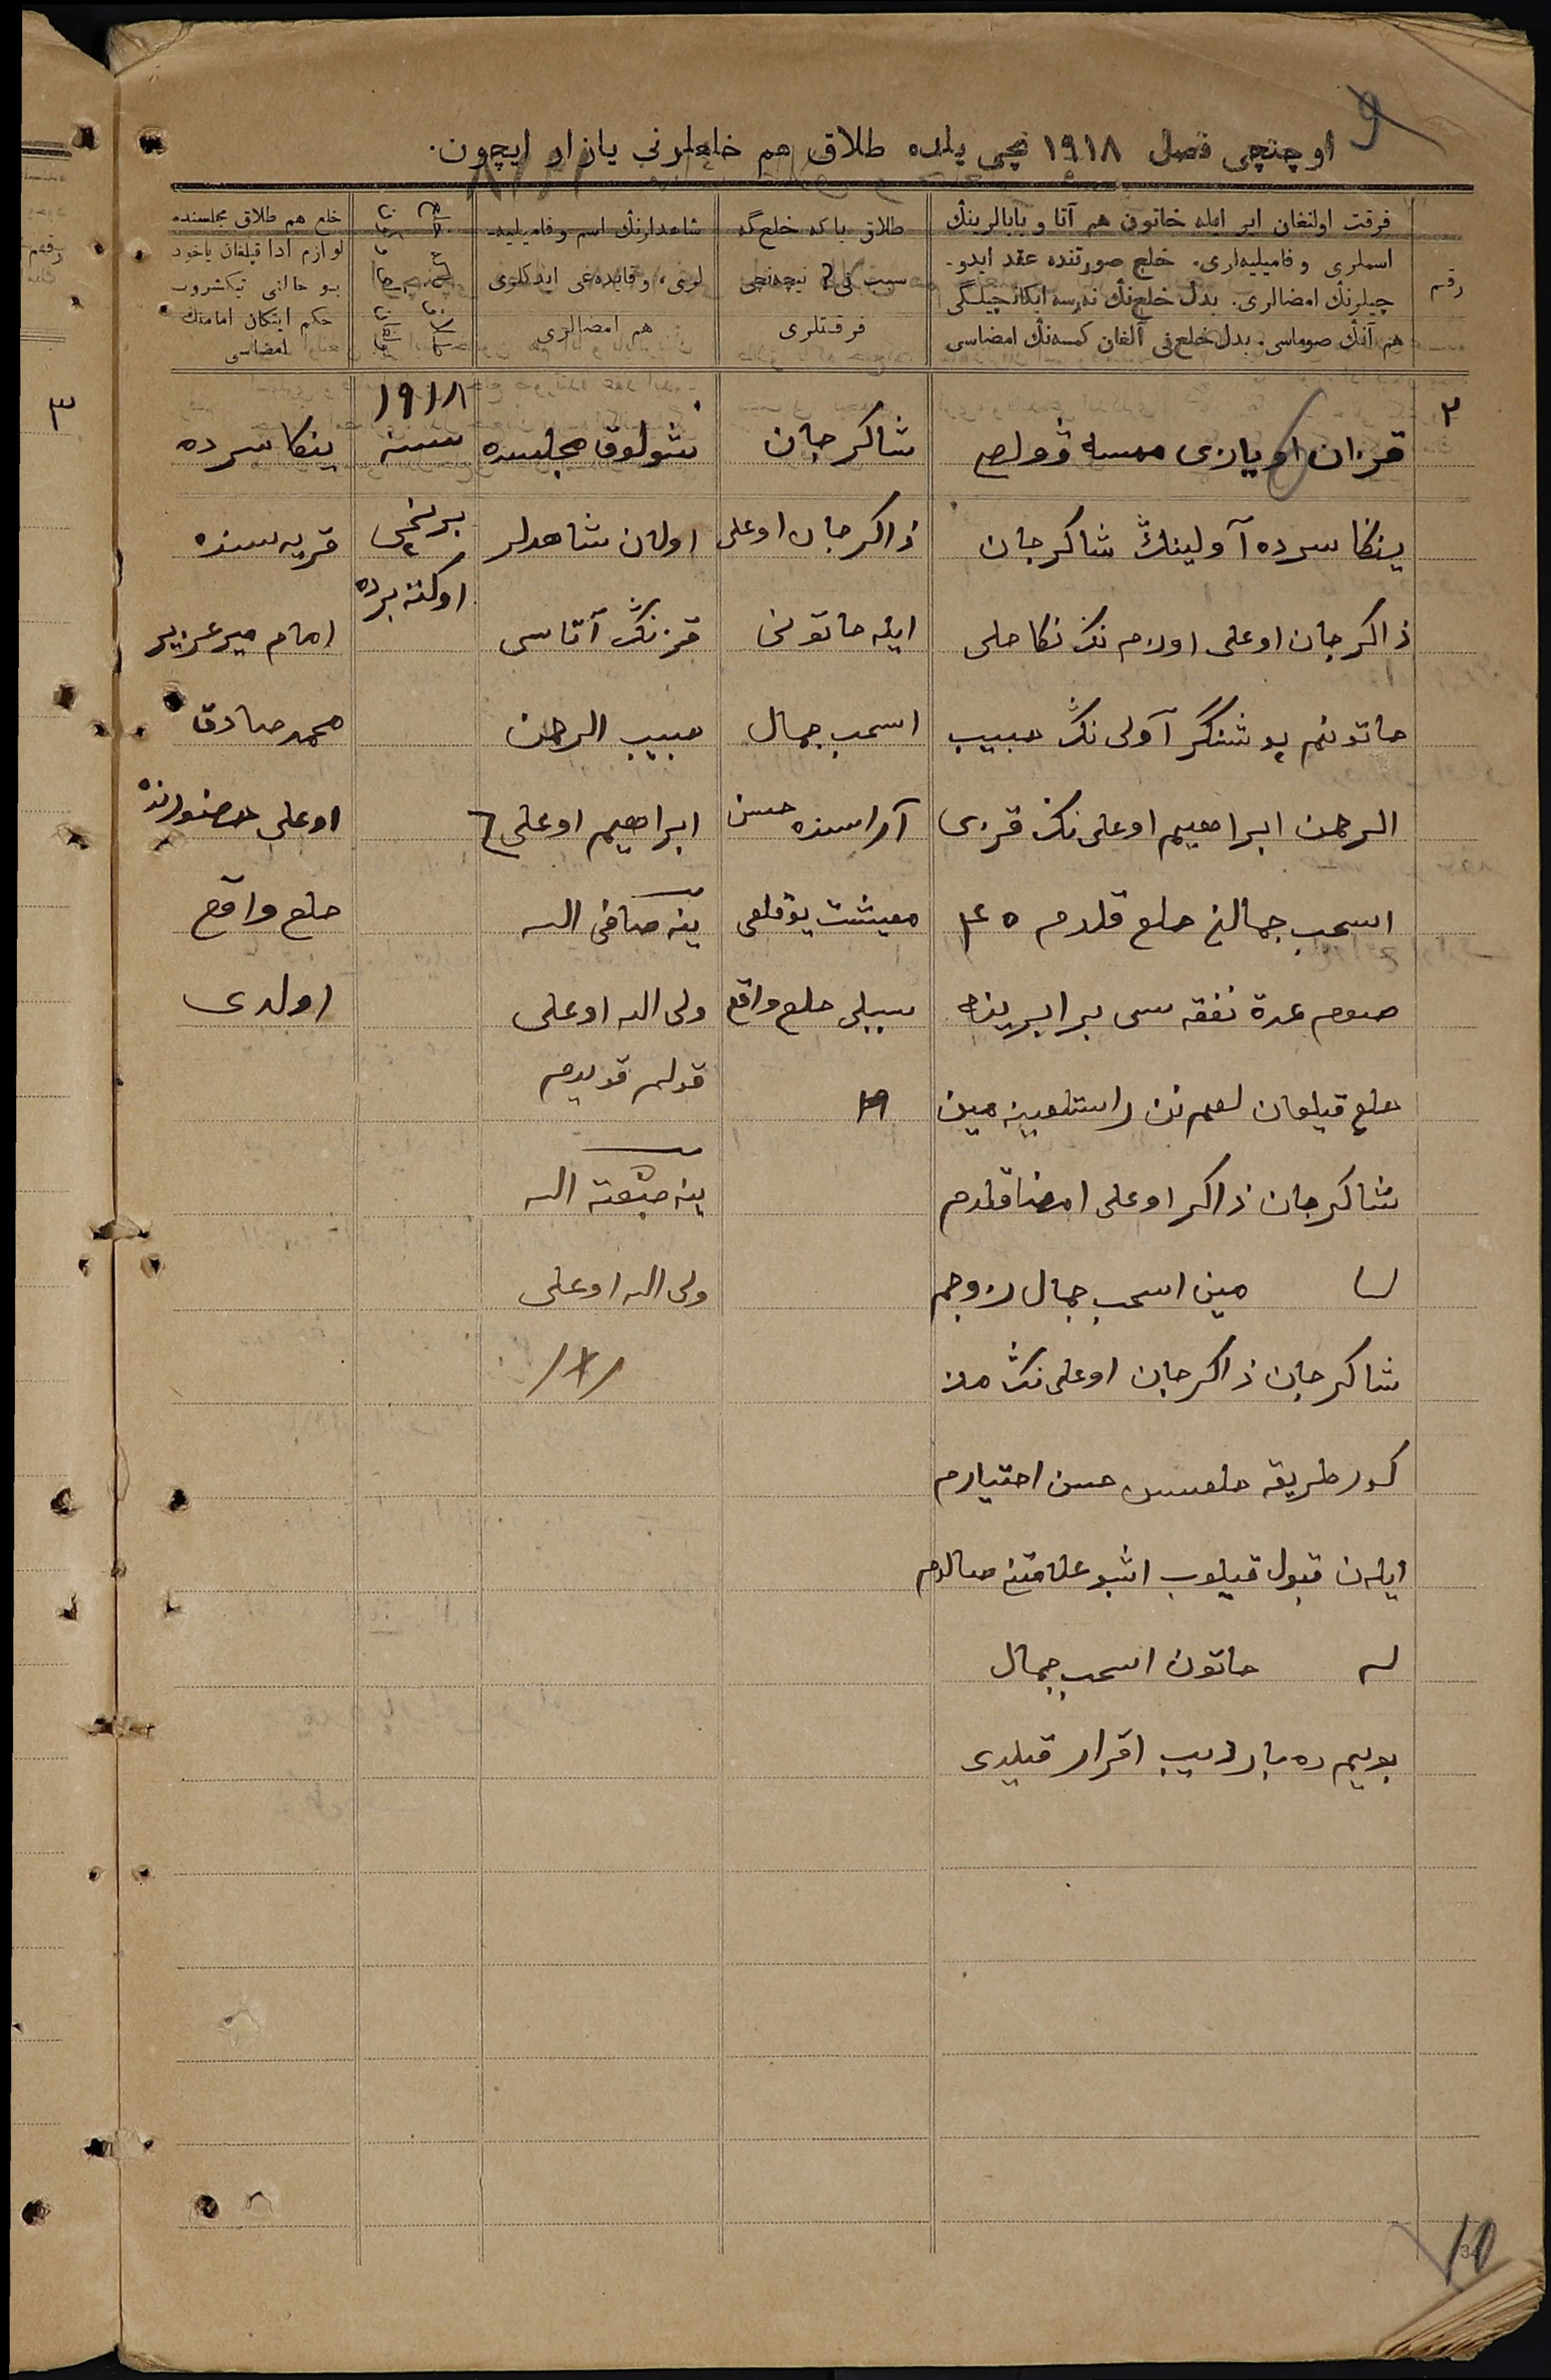 9
اوچنچی فصل ۱۹۱۸ نچی یلده طلاق هم خلعلرنی یازار ایچون.
رقم
فرقت اولنغان ایر ایله خاتون هم آتا و بابالرینڭ
اسملری و فامیلیه‌لری. خلع صورتنده عقد ایدو-
چیلرنڭ امضالری. بدل خلع‌نڭ نه‌رسه ایکانچیلگی
هم آنڭ صوماسی. بدل خلع‌نی آلغان کمسه‌نڭ امضاسی
طلاق یا که خلع گه
سبب نی؟ نیچه‌نچی
فرقتلری
شاهدلرنڭ اسم و فامیلیه-
لری، و قایده‌غی ایدکلری
هم امضالری
خلع هم طلاق مجلسنده
لوازم ادا قیلغان یاخود
بو حالنی تیکشروب
حکم ایتکان امامنڭ
امضاسی
۲
قزان اویازی ممسه ڤولص
ینکا سرده آولینڭ شاکرجان
ذاکرجان اوغلی اولارم نڭ نکاحلی
خاتونم پوشنگر آولی نڭ حبیب
الرحمن ابراهیم اوغلی نڭ قزی
اسمب جمالنی خلع قلدم ۴۵
صوم عدة نفقه سی برابرینه
خلع قیلغان لغم نن راستلغینه مین
شاکرجان ذاکر اوغلی امضا قلدم
مین اسمب جمال زوجم
شاکرجان ذاکرجان اوغلی نڭ
کور طریقه خلعسن حسن اختیارم
ایله‌ن قبول قیلوب اشبو علامتنی صالدم
خاتون اسمب جمال
بویم ده بار دیب اقرار قیلدی
شاکرجان
ذاکرجان اوغلی
ایله خاتونی
اسمب جمال
آراسنده حسن
معیشت یوقلغی
سببلی خلع واقع
شولوق مجلسده
اولان شاهدلر
قزنڭ آتاسی
حبیب الرحمن
ابراهیم اوغلی
ینه صافی الله
ولی الله اوغلی
قولم قویدم
ینه صبغة الله
ولی الله اوغلی
۱۹۱۸
سنه
برنچی
اوکتەبرده
ینکا سرده
قریه سنده
امام میرعزیز
محمد صادق
اوغلی حضورنده
خلع واقع
اولدی
۳
رقم
10
34